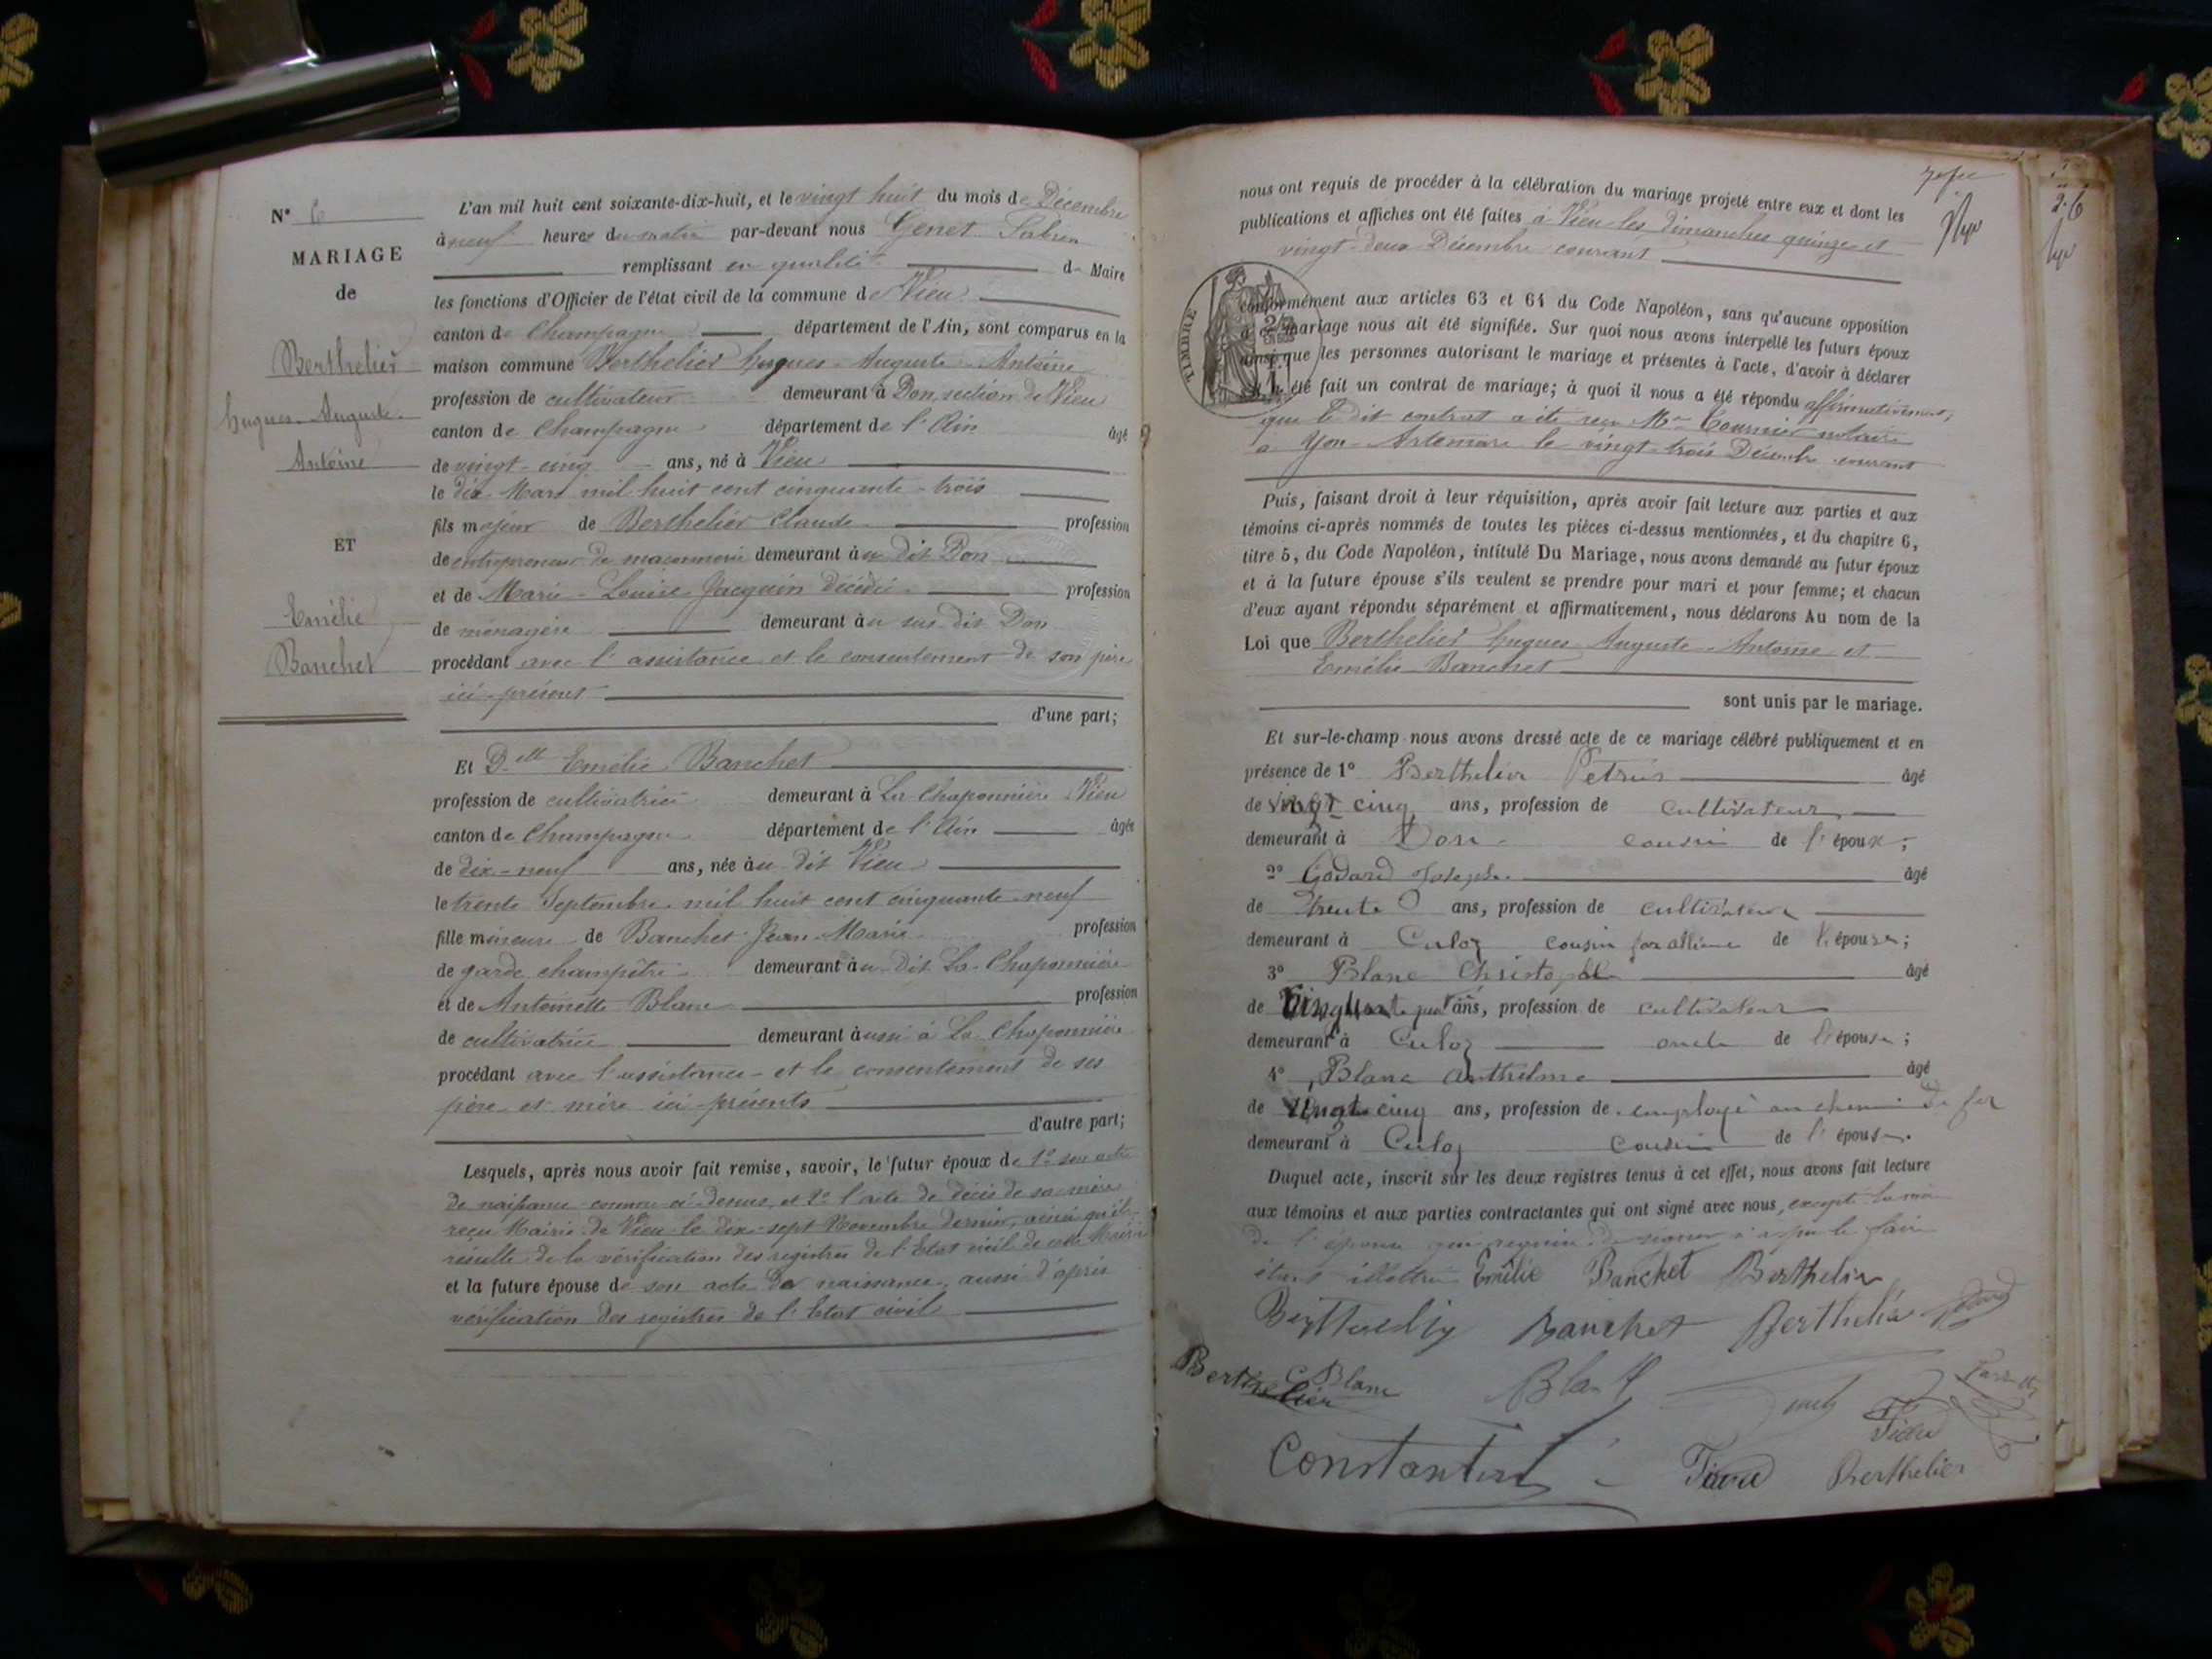 N° 6
MARIAGE
de
Berthelier
hugues-Auguste-
Antoine
ET
Emélie
Banchet
L'an mil huit cent soixante-dix-huit, et le vingt huit du mois de Décembre
à neuf heures du matin par-devant nous Genet
remplissant en qualité de Maire
les fonctions d'Officier de l'état civil de la commune de Vieu
canton de Champagne département de l'Ain, sont comparus en la
maison commune Berthelier hugues-Auguste-Antoine
profession de cultivateur demeurant à Don, section de Vieu
canton de Champagne département de l'Ain âgé
de vingt-cinq ans, né à Vieu
le dix Mars mil huit cent cinquante-trois
fils majeur de Berthelier Claude profession
de entrepreneur de maconnerie demeurant au dit Don
et de Marie-Louise Jacquin décédée profession
de ménagère demeurant au sus dit Don
procédant avec l'assistance et le consentement de son père
ici présent
d'une part;
Et Delle Emélie Banchet
profession de cultivatrice demeurant à La Chaponnière Vieu
canton de Champagne département de l'Ain âgée
de dix-neuf ans, née au dit Vieu
le trente Septembre mil huit cent cinquante-neuf
fille mineure de Banchet Jean-Marie profession
de garde champêtre demeurant au dit La Chaponnière
et de Antoinette Blanc profession
de cultivatrice demeurant aussi à La Chaponnière
procédant avec l'assistance et le consentement de ses
père et mère ici présents
d'autre part;
Lesquels, après nous avoir fait remise, savoir, le futur époux de 1° son acte
de naissance comme ci-dessus, et 2° l'acte de décès de sa mère
reçu Mairie de Vieu le dix-sept Novembre dernier, ainsi qu'il
résulte de la vérification des registres de l'Etat civil de cette Mairie
et la future épouse de son acte de naissance, aussi d'après
vérification des registres de l'Etat civil
nous ont requis de procéder à la célébration du mariage projeté entre eux et dont les
publications et affiches ont été faites à Vieu les dimanches quinze et
vingt-deux Décembre courant
TIMBRE
conformément aux articles 63 et 64 du Code Napoléon, sans qu'aucune opposition
à ce mariage nous ait été signifiée. Sur quoi nous avons interpellé les futurs époux
ainsi que les personnes autorisant le mariage et présentes à l'acte, d'avoir à déclarer
s'il a été fait un contrat de mariage; à quoi il nous a été répondu affirmativement,
que le dit contrat a été reçu Me notaire
à Yon-Artemare le vingt-trois Décembre courant
Puis, faisant droit à leur réquisition, après avoir fait lecture aux parties et aux
témoins ci-après nommés de toutes les pièces ci-dessus mentionnées, et du chapitre 6,
titre 5, du Code Napoléon, intitulé Du Mariage, nous avons demandé au futur époux
et à la future épouse s'ils veulent se prendre pour mari et pour femme; et chacun
d'eux ayant répondu séparément et affirmativement, nous déclarons Au nom de la
Loi que Berthelier hugues Auguste-Antoine et
Emélie Banchet
sont unis par le mariage.
Et sur-le-champ nous avons dressé acte de ce mariage célébré publiquement et en
présence de 1° Berthelier Petrus âgé
de vingt cinq ans, profession de cultivateur
demeurant à Don cousin de l'époux;
2° Godard Joseph âgé
de trente ans, profession de cultivateur
demeurant à Culoz cousin par alliance de l'épouse;
3° Blanc Christophe âgé
de ans, profession de cultivateur
demeurant à Culoz oncle de l'épouse;
4° Blanc Anthelme âgé
de vingt cinq ans, profession de employé au chemin de fer
demeurant à Culoz cousin de l'épouse.
Duquel acte, inscrit sur les deux registres tenus à cet effet, nous avons fait lecture
aux témoins et aux parties contractantes qui ont signé avec nous, excepté la mère
de l'épouse qui requise de signer n'a pu le faire
étant illettrée Emélie Banchet Berthelier
Berthelier Banchet Berthelier
Berthelier C Blanc
Constantin Berthelier